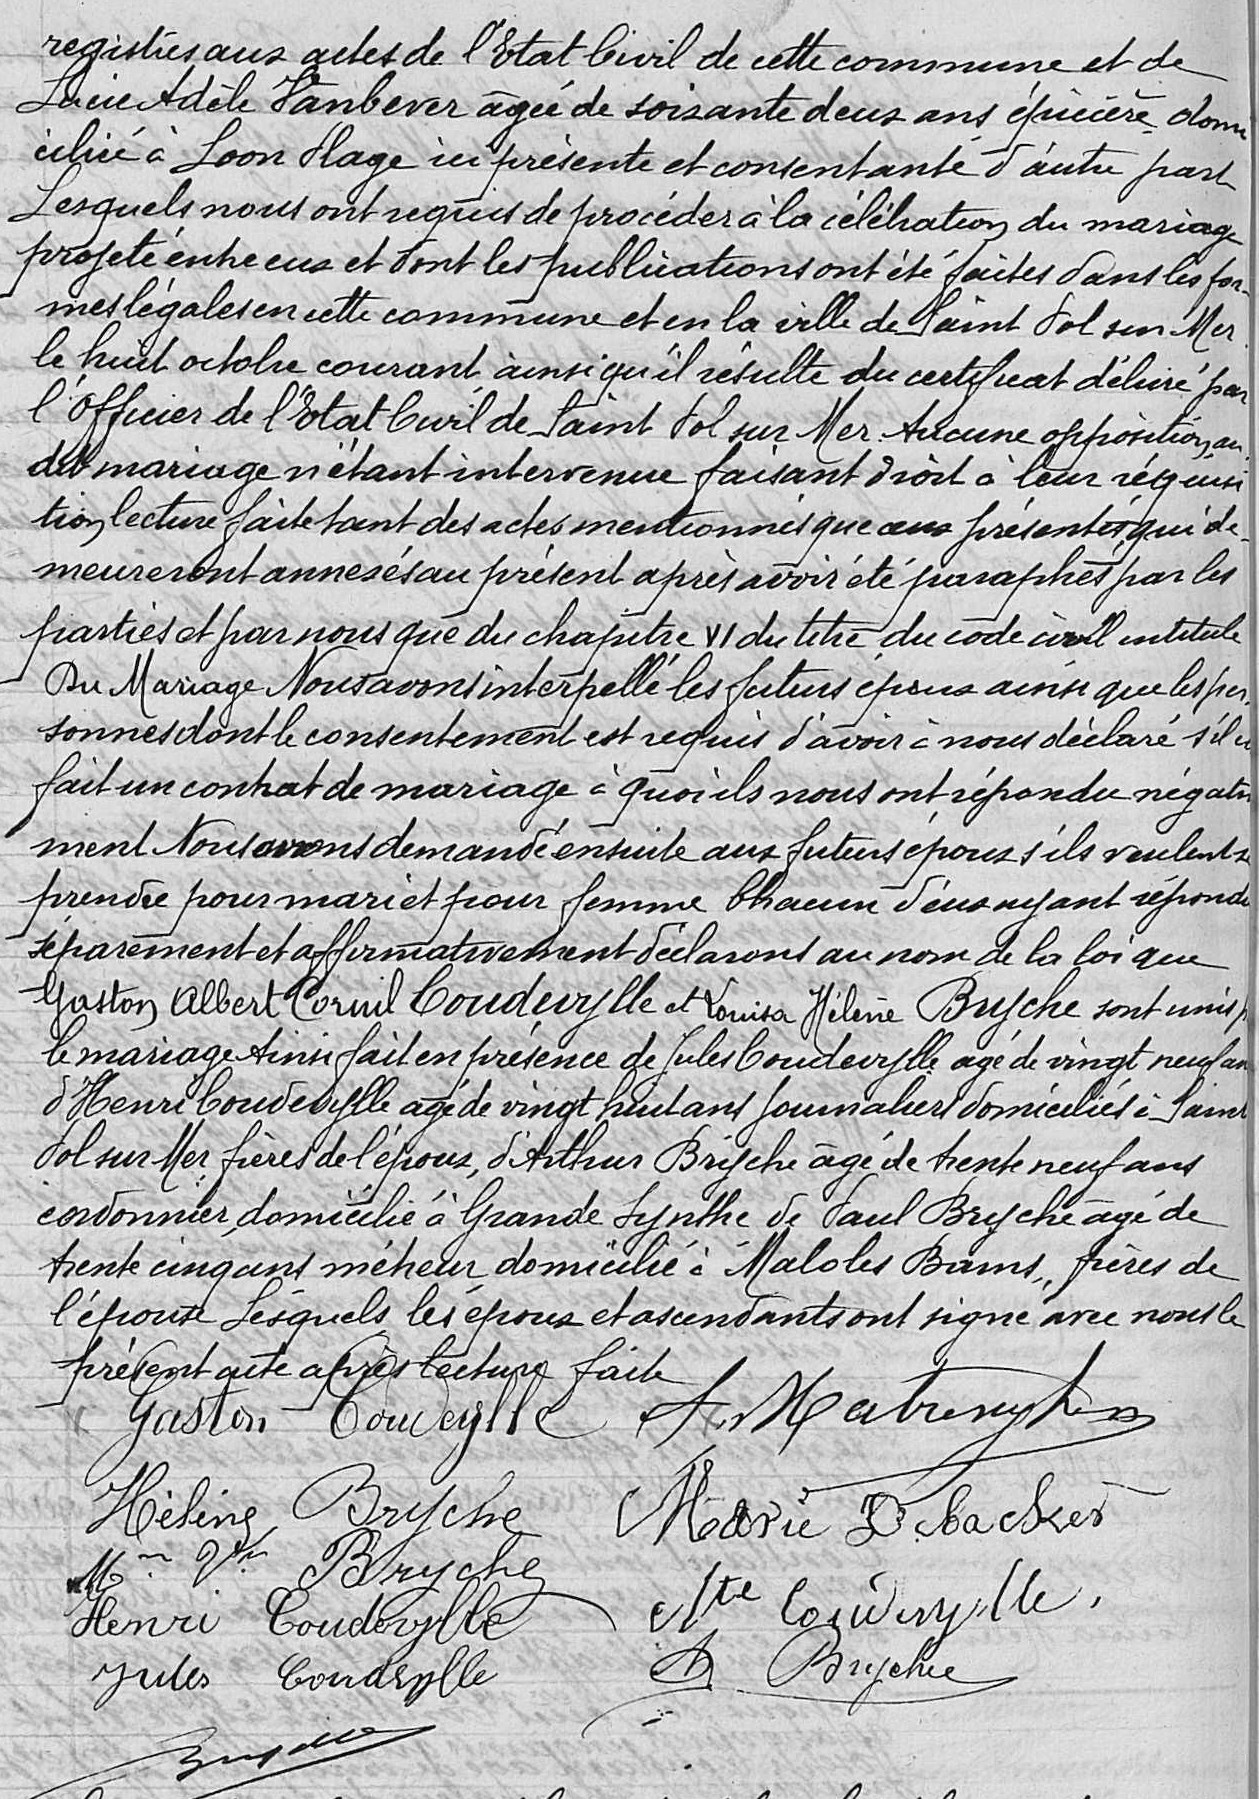 registres aux actes de l'Etat Civil de cette commune et de
Lucie Adèle Vanbever âgée de soixante deux ans épicière domi
ciliée à Loon Plage ici présente et consentante d'autre part
Lesquels nous ont requis de procéder à la célébration du mariage
projeté entre eux et dont les publications ont été faites dans les for-
mes légales en cette commune et en la ville de Saint Pol sur Mer
le huit octobre courant ainsi qu'il résulte du certificat délivré par
l'Officier de l'Etat Civil de Saint Pol sur Mer. Aucune opposition au
dit mariage n'étant intervenue faisant droit à leur réquisi
tion lecture faite tant des actes mentionnés que ceux présentés qui de-
meureront annexés au présent après avoir été paraphés par les
parties et par nous que du chapitre VI du titre du code civil intitule
Du Mariage Nous avons interpellé les futurs époux ainsi que les per
sonnes dont le consentement est requis d'avoir à nous déclaré s'il a
fait un contrat de mariage à quoi ils nous ont répondu négativ
ment Nous avons demandé ensuite aux futurs époux s'ils veulent se
prendre pour mari et pour femme Chacun d'eux ayant répondu
séparement et affirmativement déclarons au nom de la loi que
Gaston Albert Cornil Coudevylle et Louisa Hélène Bryche sont unis p
le mariage Ainsi fait en présence de Jules Coudevylle agé de vingt neuf ans
d'Henri Coudevylle agé de vingt huit ans journaliers domiciliés à Saint
Pol sur Mer, frères de l'époux, d'Arthur Bryche âgé de trente neuf ans
cordonnier, domicilié à Grande Synthe de Paul Bryche agé de
trente cinq ans métreur domicilié à Malo les Bains, frères de
l'épouse Lesquels les époux et ascendants ont signé avec nous le
présent acte après lecture faite
Gaston Coudeylle
Hélène Bryche Marie Debacker
Mme Vve Bryche
Henri Coudevylle Coudevylle
Jules Coudevylle A Bryche